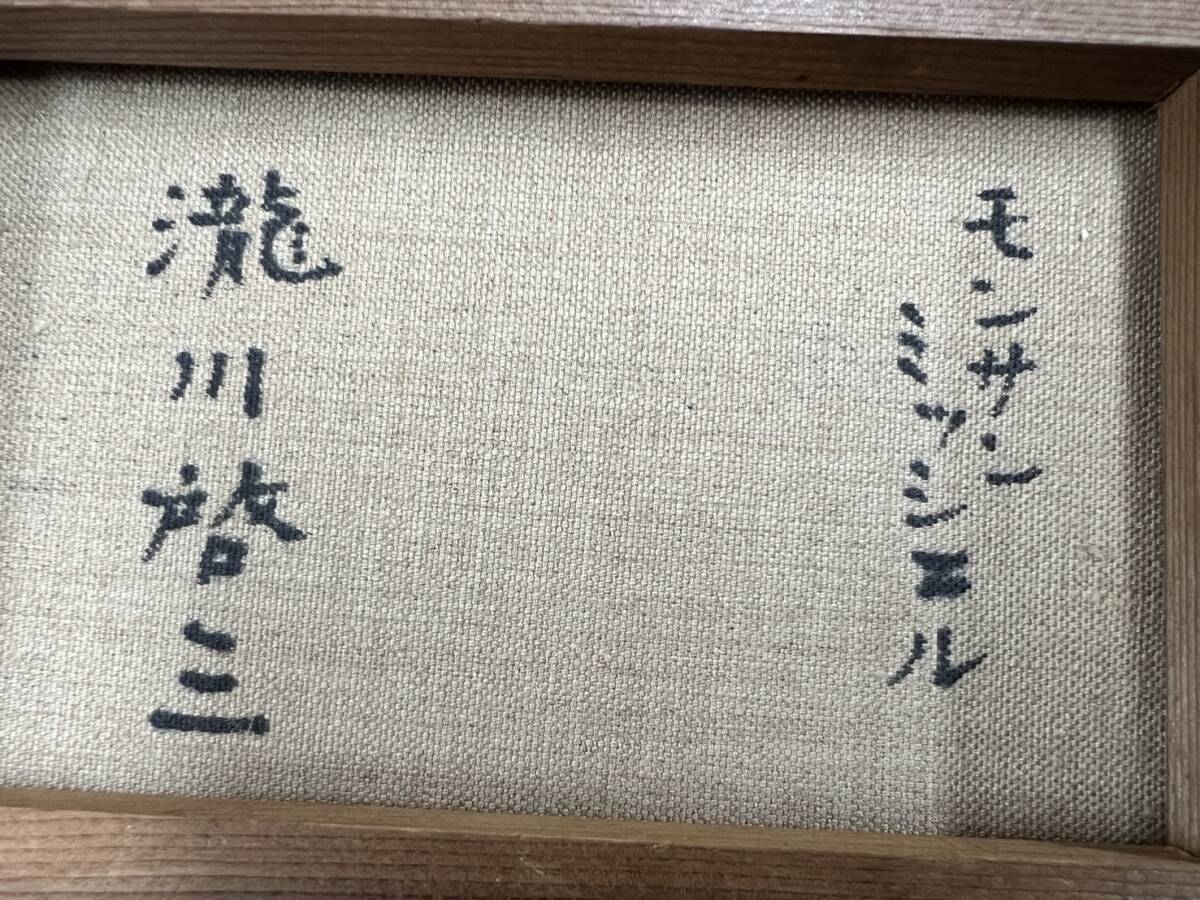 モンサン
ミッシェル
瀧川啓三